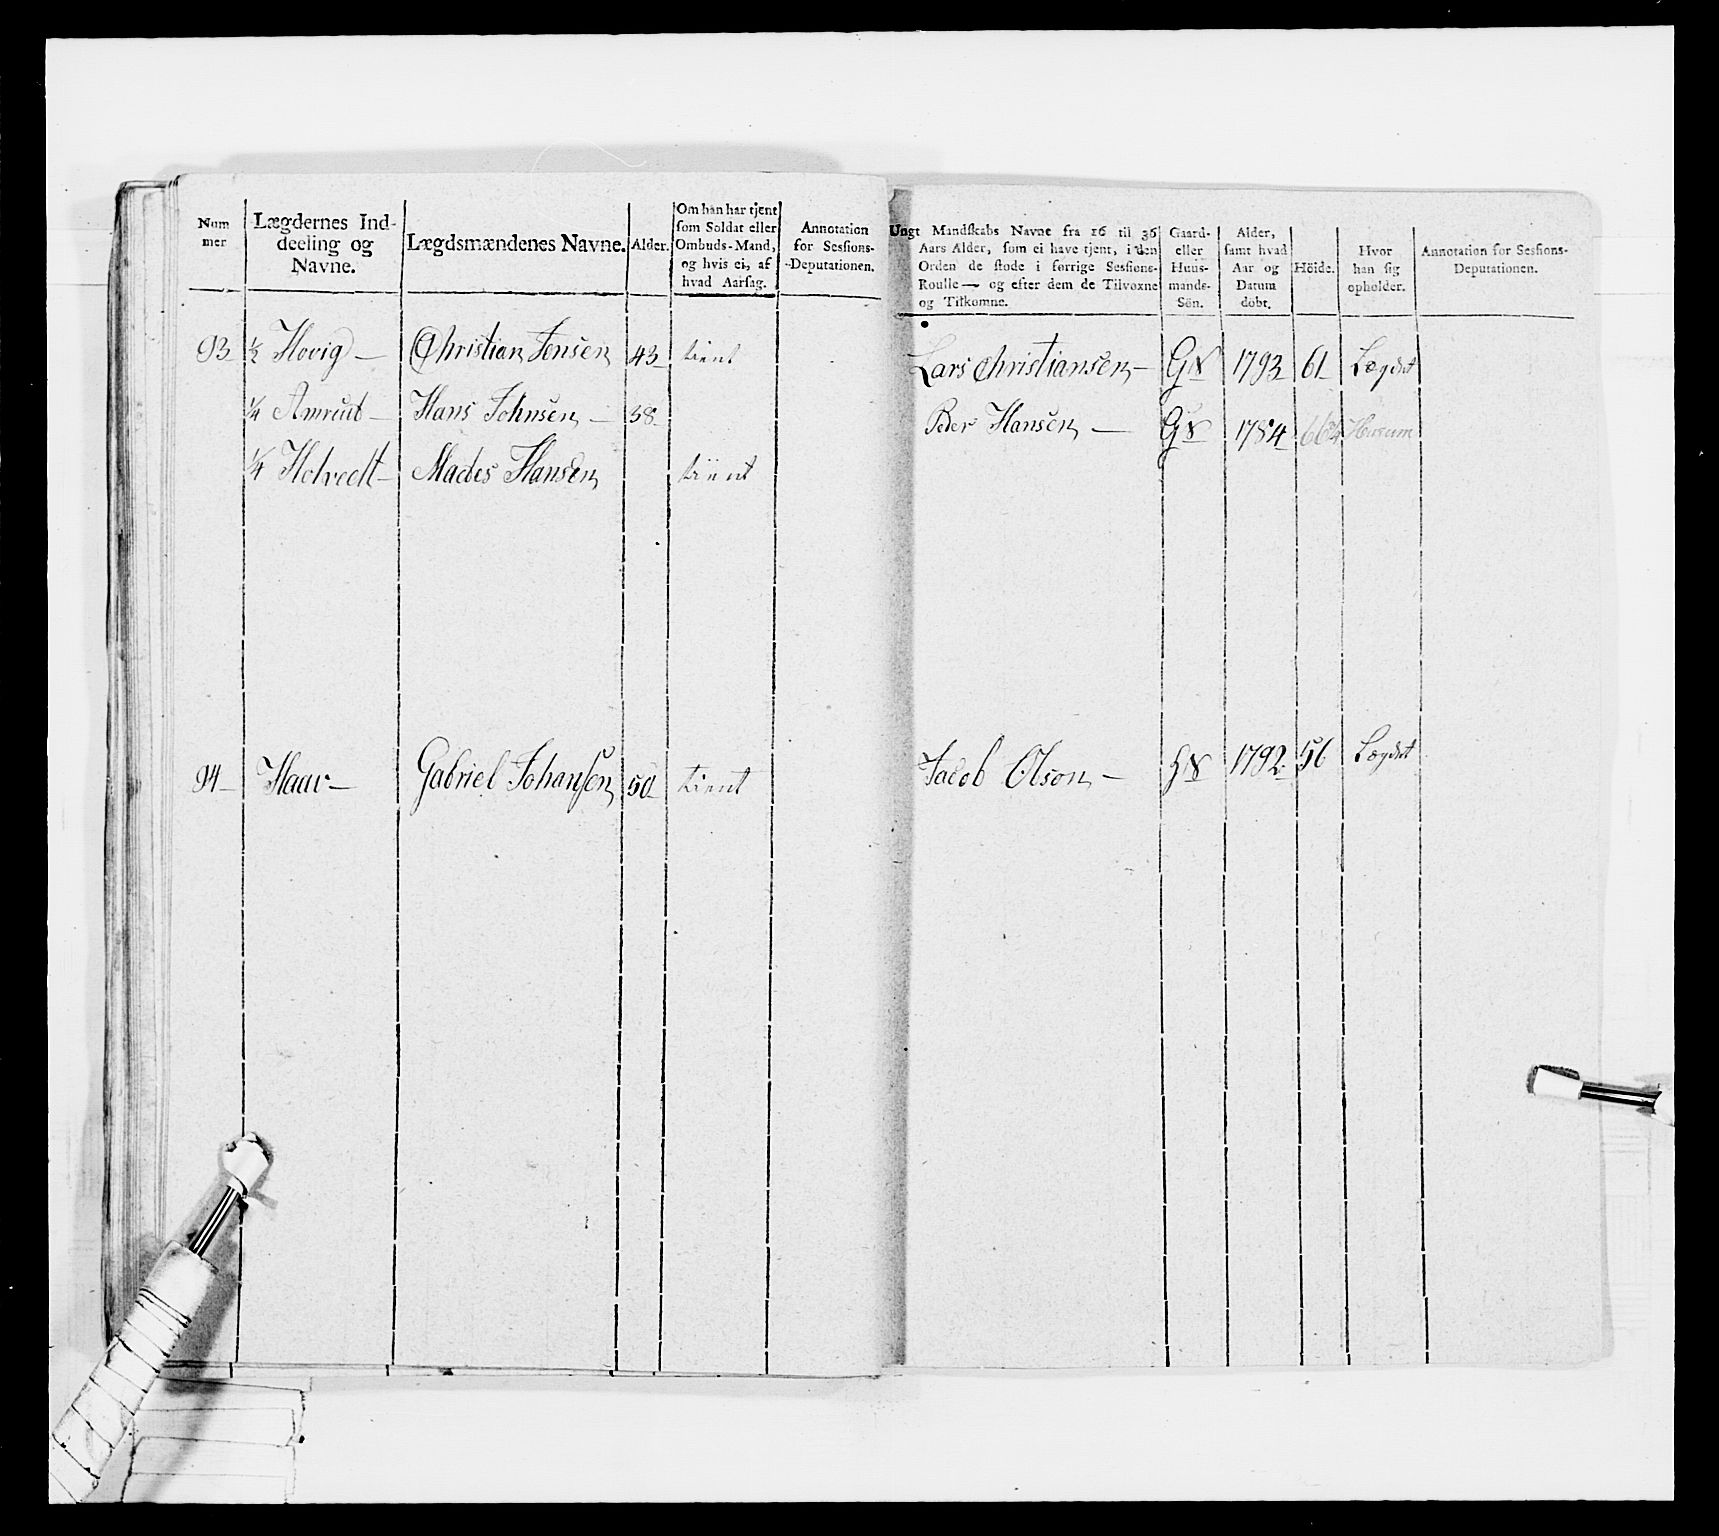 Num
mer
Lægdernes Ind-
deeling og
Navne.
Lægdsmændenes Navne.
Alder.
Om han har tjent
som Soldat eller
Ombuds-Mand,
og hvis ei, af
hvad Aarsag.
Annotation
for Sessions-
-Deputationen.
93 ½ Hovig — Christian Jensen 43 tient
¼ — Hans Johnsen — 38
¼ Holvedt — Mades Hansen tient
94 — Haav — Gabriel Johansen 50 tient
Ungt Mandskabs Navne fra 16 til 36
Aars Alder, som ei have tjent, i den
Orden de stode i forrige Sessions-
Roulle — og efter dem de Tilvoxne
og Tilkomne.
Gaard-
eller
Huus-
mands-
Sön.
Alder,
samt hvad
Aar og
Datum
dobt.
Höide.
Hvor
han sig
opholder.
Annotation for Sessions-
Deputationen.
Lars Christiansen — G S 1793 61 Lægdet
Peder Hansen — G S 1784 66¾ Husum
Jacob Olson — H S 1792 56 Lægdet